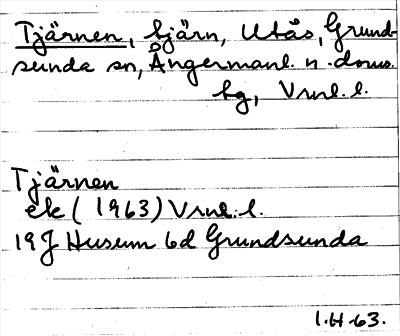 Tjärnen, tjärn, Utås, Grund-
sunda sn, Ångermanl. n. doms.
hg, Vrnl. l.
Tjärnen
ek (1963) Vrnl. l.
19J Husum 6d Grundsunda
I.H-63.